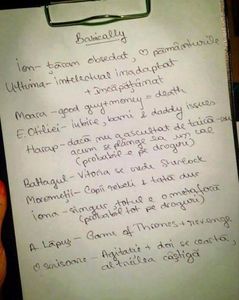 Basically
Ion - țăran obsedat, ♡ pământurile
Ultima - intelectual inadaptat
+ încăpățânat
Moara - good guy + money = death
E. Otiliei - iubire, bani & daddy issues
Harap - dacă nu a ascultat de taică-su
acum se plânge ca un
(probabil e pe droguri)
Baltagul - Vitoria se crede Sherlock
Moromeții - Copii rebeli & tată dur
Iona - singur, totul e o metaforă
(probabil tot pe droguri)
A. Lăpuș - Game of Thrones + revenge
O scrisoare - Agitație + doi se ceartă,
al treilea câștigă